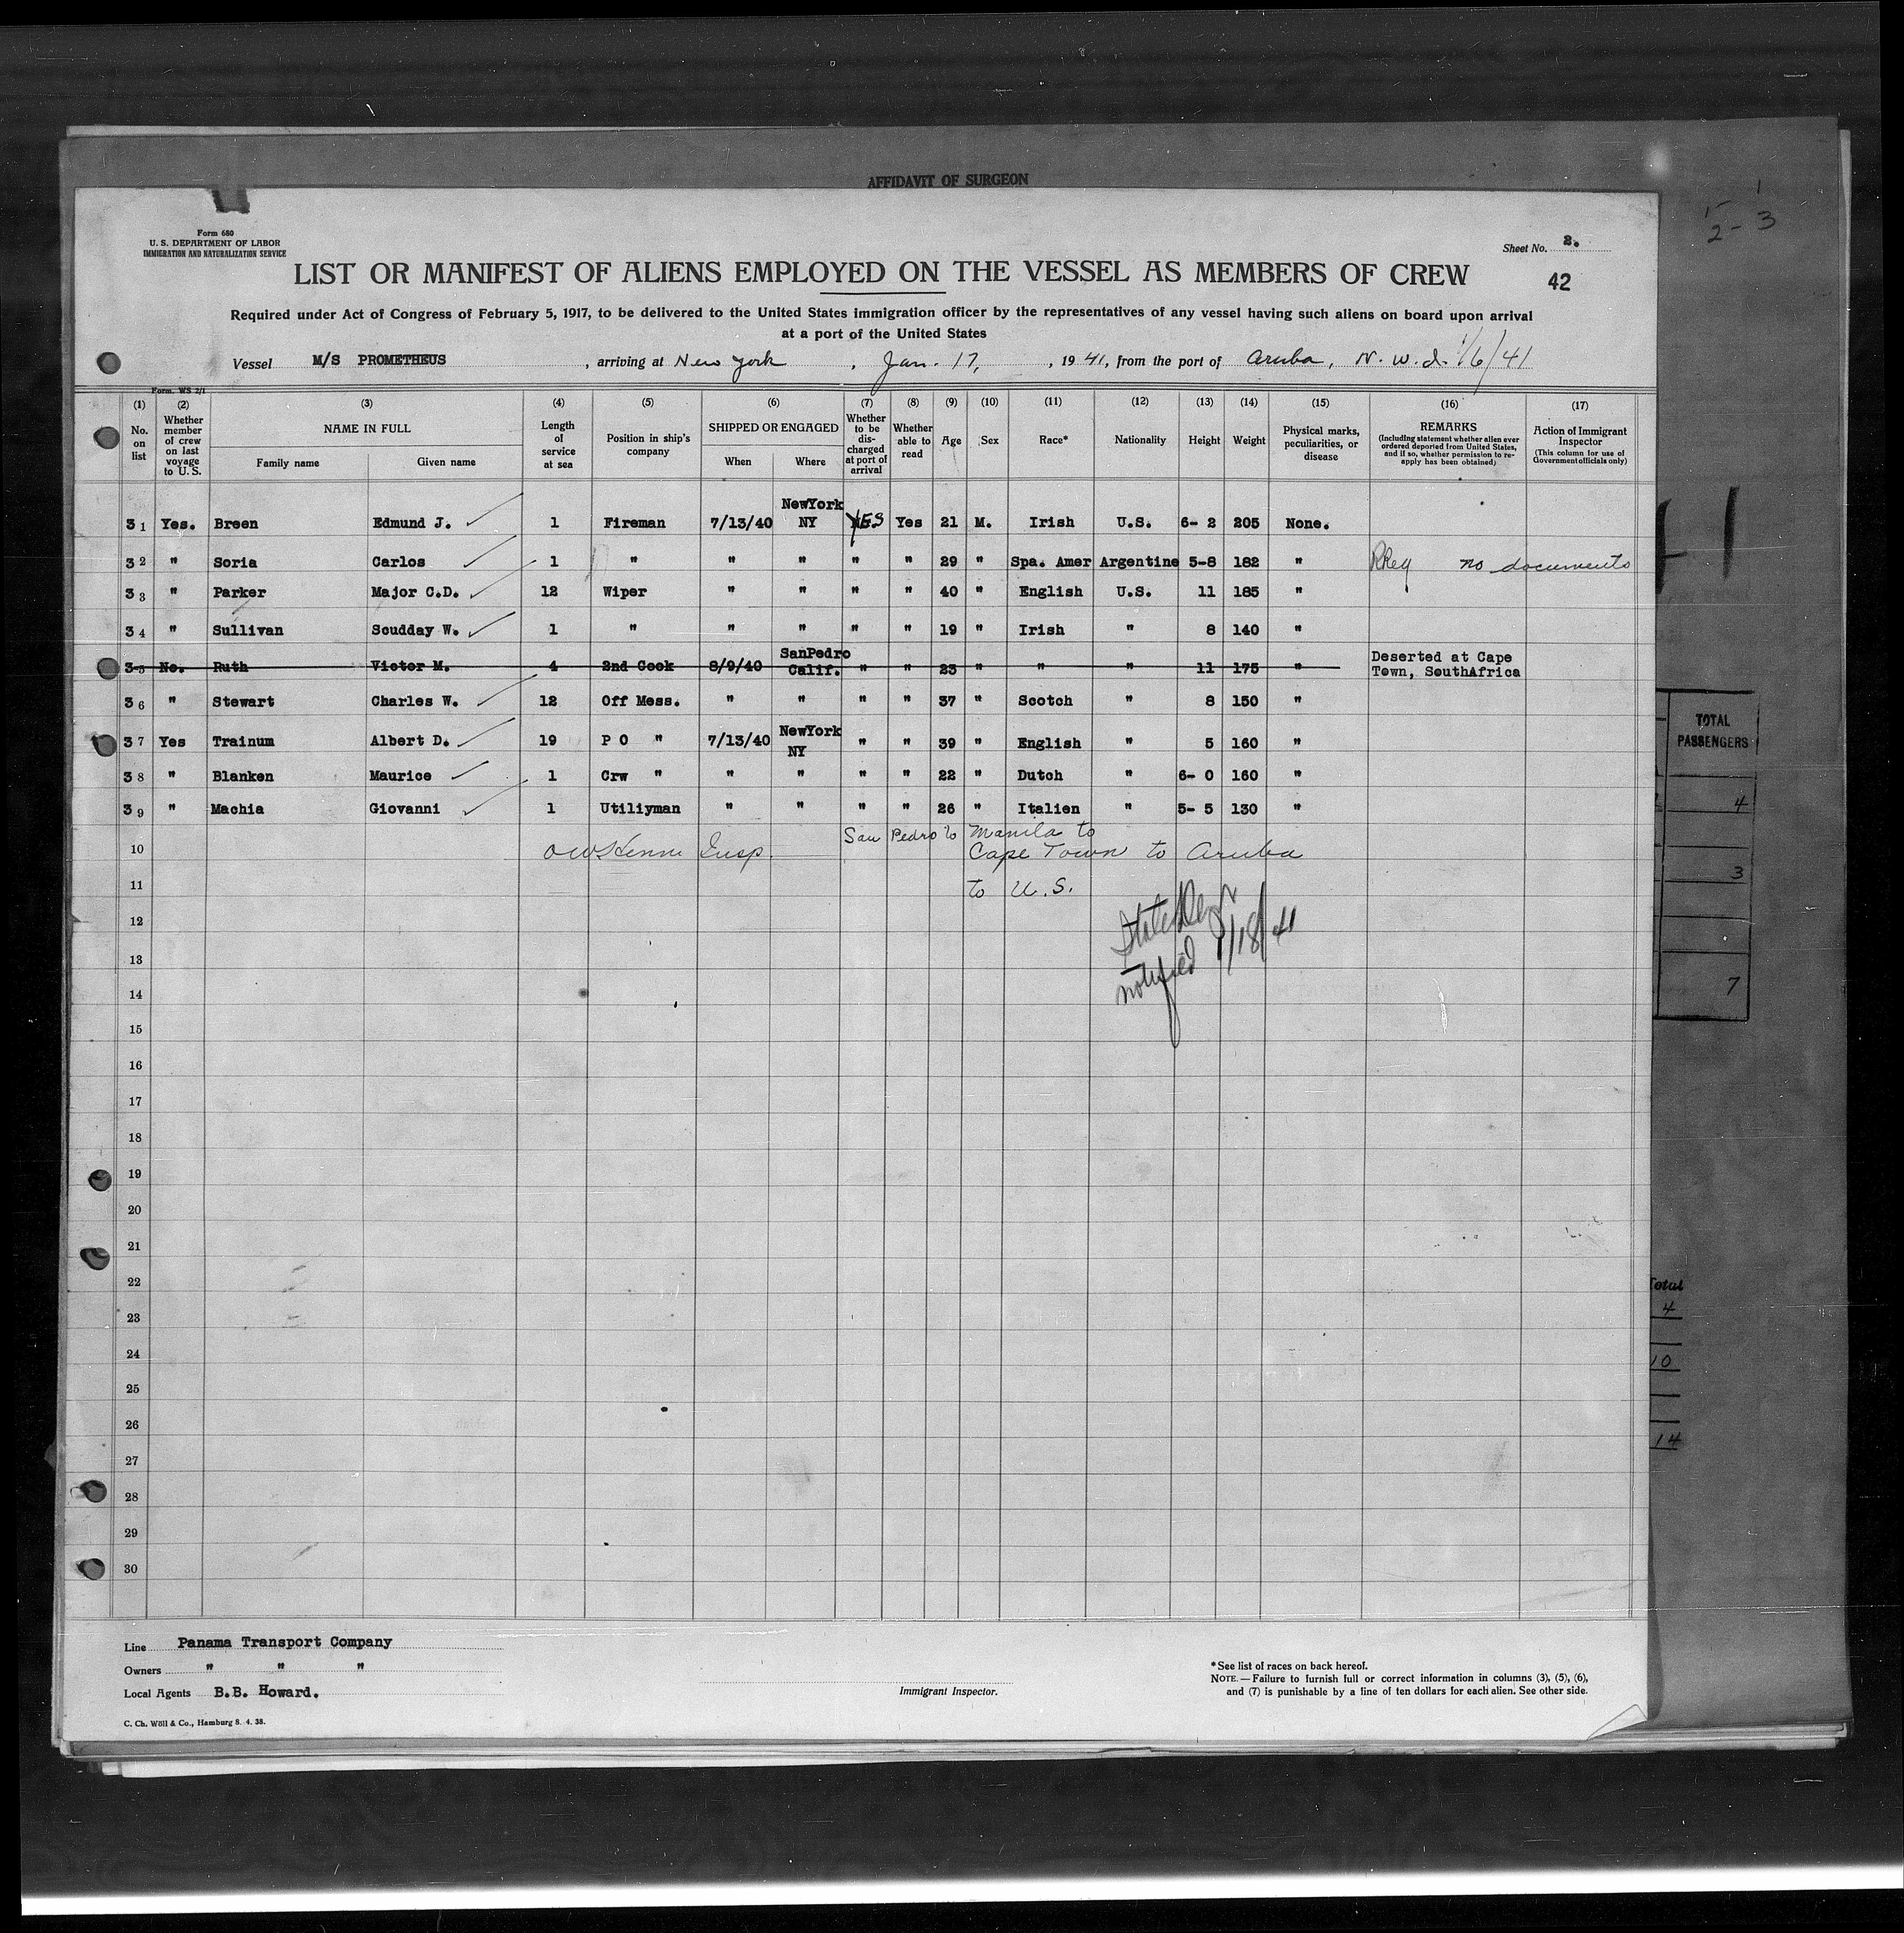 AFFIDAVIT OF SURGEON
1
2 - 3
Form 680
U. S. DEPARTMENT OF LABOR
IMMIGRATION AND NATURALIZATION SERVICE
Sheet No. 2.
LIST OR MANIFEST OF ALIENS EMPLOYED ON THE VESSEL AS MEMBERS OF CREW
42
Required under Act of Congress of February 5, 1917, to be delivered to the United States immigration officer by the representatives of any vessel having such aliens on board upon arrival
at a port of the United States
Vessel M/S PROMETHEUS , arriving at New York , Jan. 17, , 19 41, from the port of Aruba, N. W. I. 1/6/41
Form. WS 2/1
(1) No. on list
(2) Whether member of crew on last voyage to U. S.
(3) NAME IN FULL Family name Given name
(4) Length of service at sea
(5) Position in ship's company
(6) SHIPPED OR ENGAGED When Where
(7) Whether to be dis-charged at port of arrival
(8) Whether able to read
(9) Age
(10) Sex
(11) Race*
(12) Nationality
(13) Height
(14) Weight
(15) Physical marks, peculiarities, or disease
(16) REMARKS (Including statement whether alien ever ordered deported from United States, and if so, whether permission to re-apply has been obtained)
(17) Action of Immigrant Inspector (This column for use of Government officials only)
31 Yes. Breen Edmund J. 1 Fireman 7/13/40 NewYork NY YES Yes 21 M. Irish U.S. 6- 2 205 None.
32 " Soria Carlos 1 " " " " " 29 " Spa. Amer Argentine 5-8 182 " no documents
33 " Parker Major C.D. 12 Wiper " " " " 40 " English U.S. 11 185 "
34 " Sullivan Scudday W. 1 " " " " " 19 " Irish " 8 140 "
35 No. Ruth Victor M. 4 2nd Cook 8/9/40 SanPedro Calif. " " 23 " " " 11 175 " Deserted at Cape Town, SouthAfrica
36 " Stewart Charles W. 12 Off Mess. " " " " 37 " Scotch " 8 150 "
37 Yes Trainum Albert D. 19 P O " 7/13/40 NewYork NY " " 39 " English " 5 160 "
38 " Blanken Maurice 1 Crw " " " " " 22 " Dutch " 6- 0 160 "
39 " Machia Giovanni 1 Utiliyman " " " " 26 " Italien " 5- 5 130 "
San Pedro to Manila to
10 Insp. Cape Town to Aruba
11 to U.S.
12 State Dept
13 notified 1/18/41
14
15
16
17
18
19
20
21
22
23
24
25
26
27
28
29
30
TOTAL
PASSENGERS
4
3
7
Total
4
10
14
Line Panama Transport Company
Owners " " "
Local Agents B.B. Howard.
Immigrant Inspector.
* See list of races on back hereof.
NOTE.—Failure to furnish full or correct information in columns (3), (5), (6),
and (7) is punishable by a fine of ten dollars for each alien. See other side.
C. Ch. Wöll & Co., Hamburg 8. 4. 38.